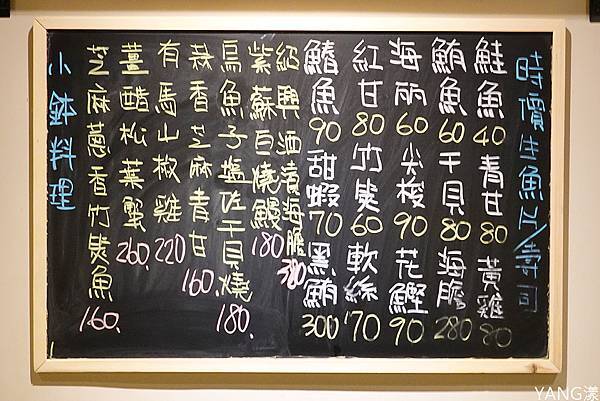 時價生魚片/壽司
鮭魚40 青甘80 黃雞80
鮪魚60 干貝80 海膽280
海丽60 尖梭90 花鰹90
紅甘80 竹筴60 軟絲170
鰆魚90 甜蝦70 黑鮪300
紹興酒漬海膽380
紫蘇白燒鰻180
烏魚子鹽佐干貝燒180.
蒜香芝麻青甘160.
有馬山椒雞220
薑醋松葉蟹260.
芝麻蔥香竹筴魚160.
小鉢料理
YANG漾